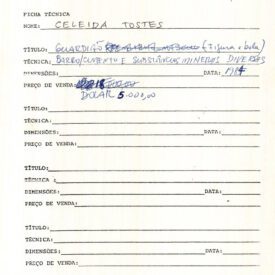 FICHA TÉCNICA
NOME: CELEIDA TOSTES
TÍTULO: GUARDIÃO (Figura e bola)
TÉCNICA: BARRO/CIMENTO E SUBSTÂNCIAS MINERAIS DIVERSAS
DIMENSÕES: DATA: 1984
PREÇO DE VENDA:
DOLAR 5.000,00
TÍTULO:
TÉCNICA:
DIMENSÕES: DATA:
PREÇO DE VENDA:
TÍTULO:
TÉCNICA:
DIMENSÕES: DATA:
PREÇO DE VENDA:
TÍTULO:
TÉCNICA:
DIMENSÕES: DATA:
PREÇO DE VENDA: